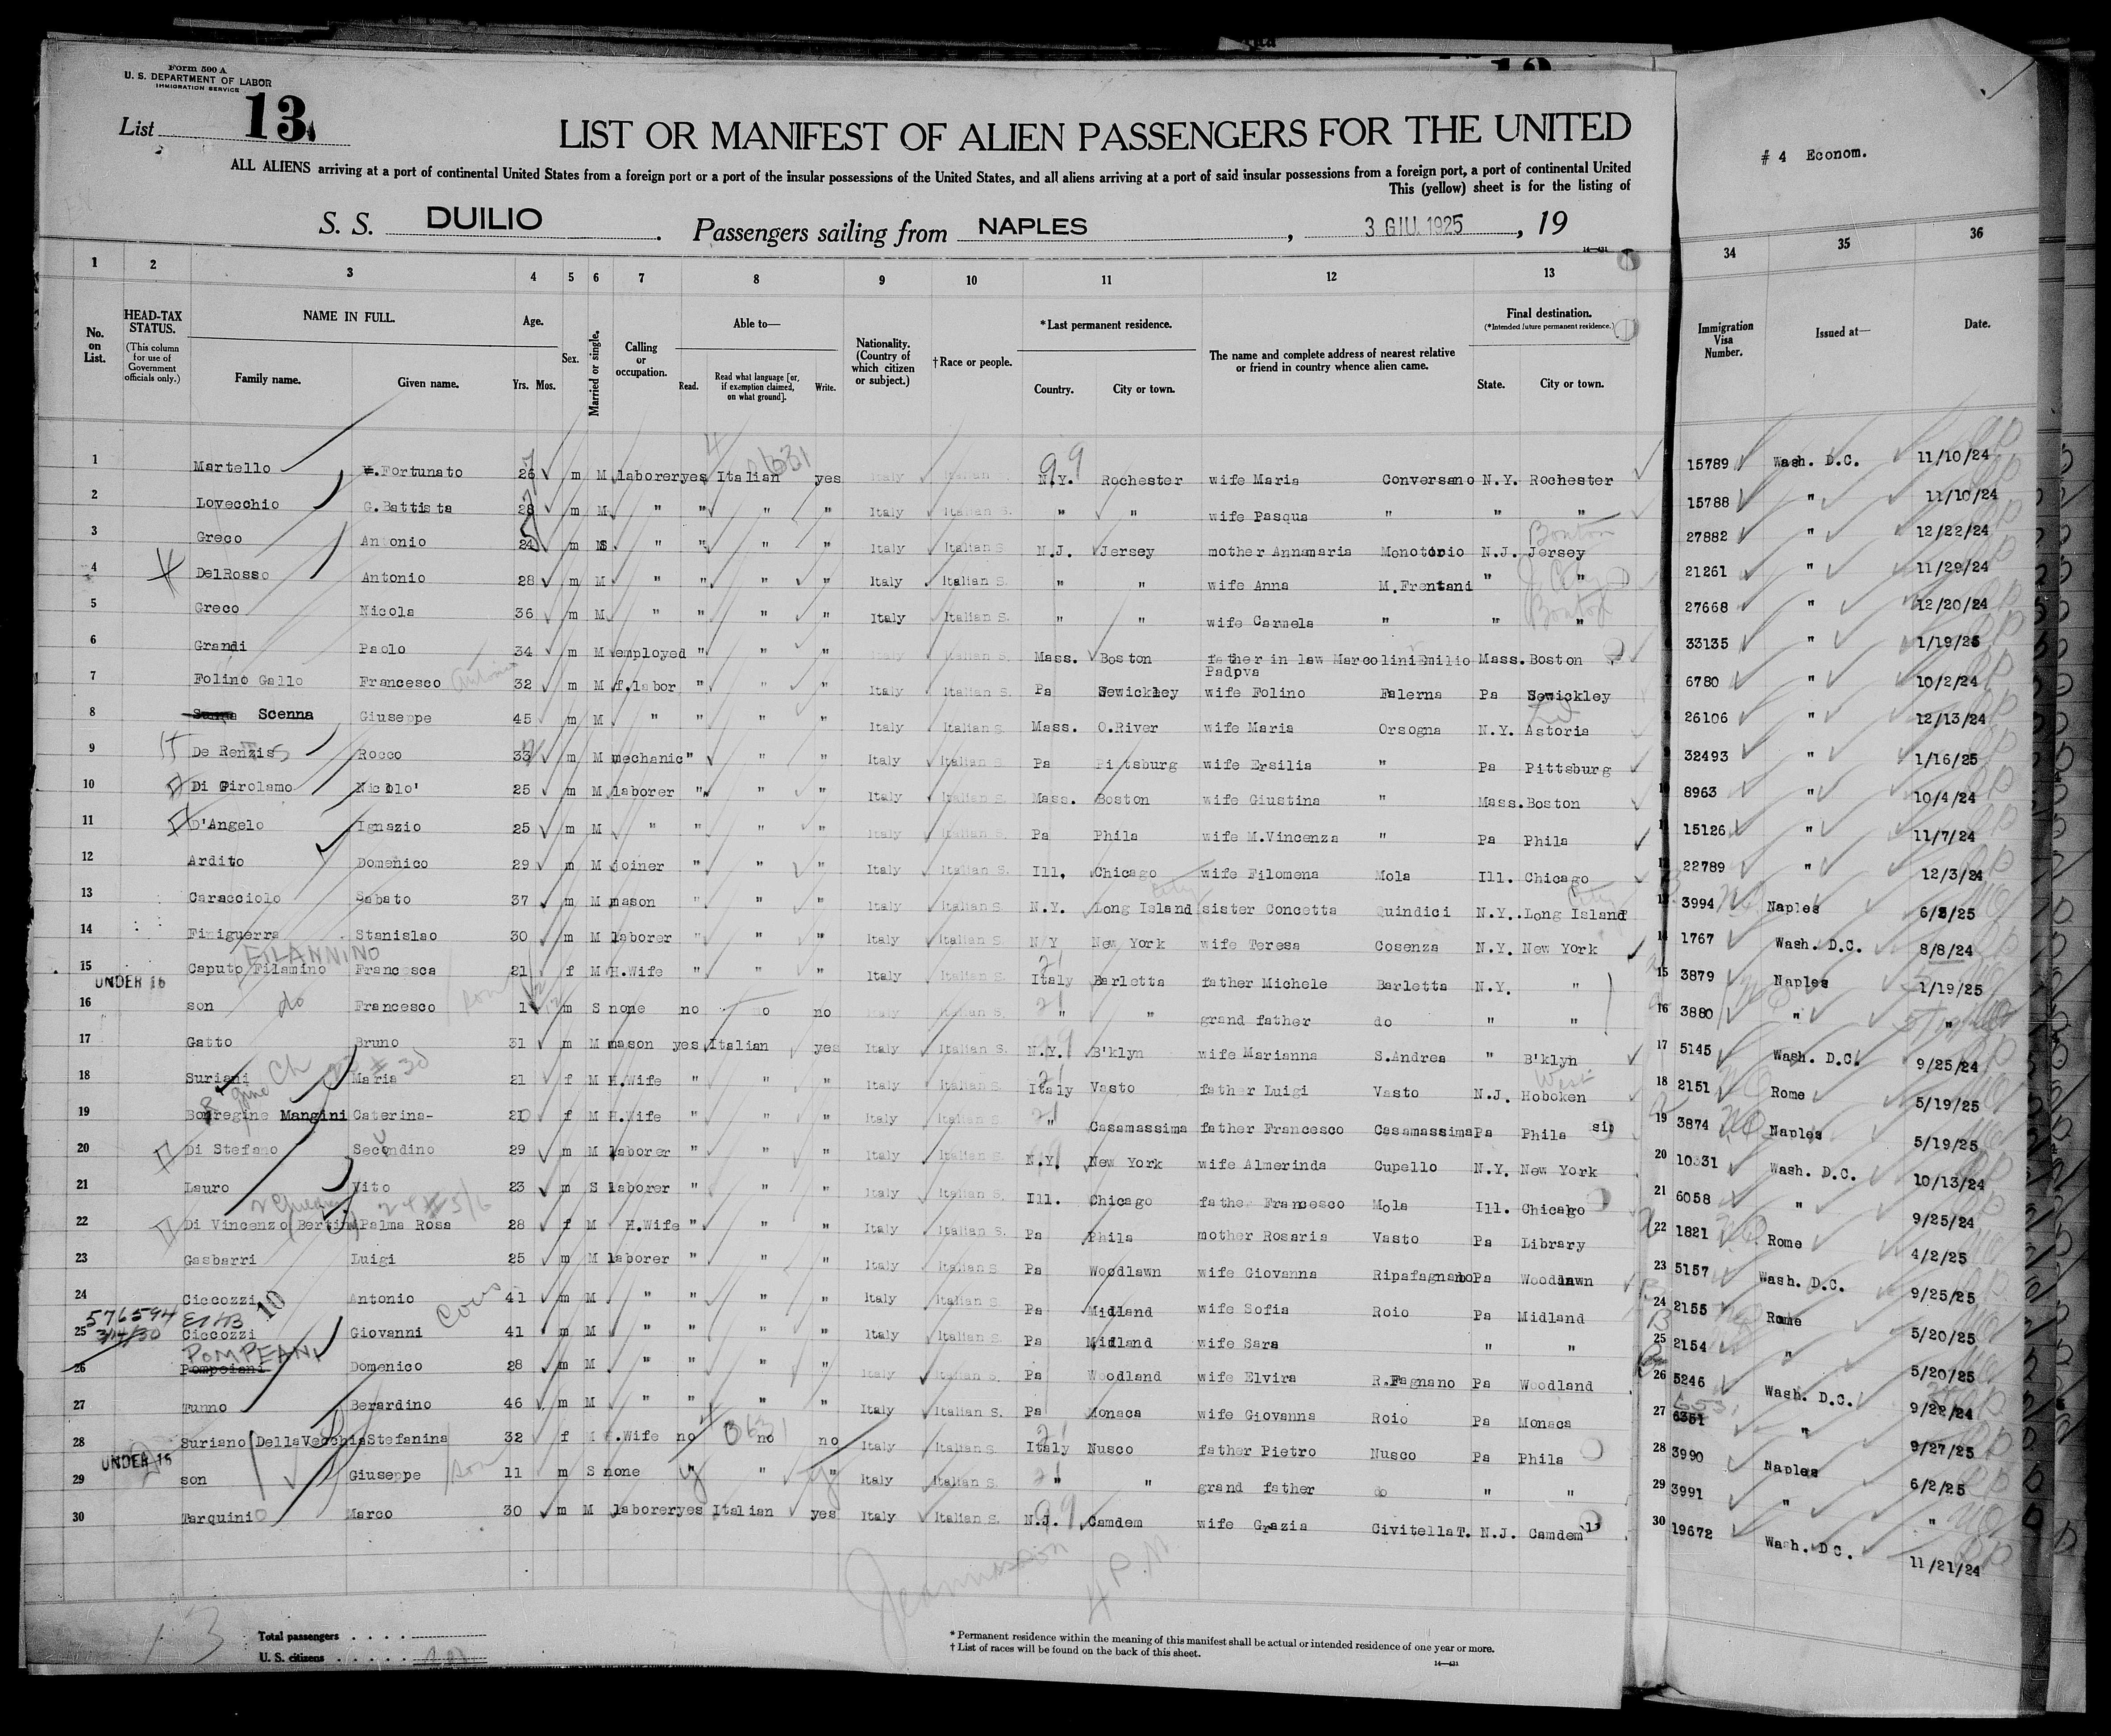 Form 500 A
U. S. DEPARTMENT OF LABOR
IMMIGRATION SERVICE
List 13
LIST OR MANIFEST OF ALIEN PASSENGERS FOR THE UNITED
ALL ALIENS arriving at a port of continental United States from a foreign port or a port of the insular possessions of the United States, and all aliens arriving at a port of said insular possessions from a foreign port, a port of continental United
This (yellow) sheet is for the listing of
# 4 Econom.
S. S. DUILIO. Passengers sailing from NAPLES, 3 GIU. 1925, 19
16—431
1 2 3 4 5 6 7 8 9 10 11 12 13 34 35 36
No. on List.
HEAD-TAX STATUS.
(This column for use of Government officials only.)
NAME IN FULL.
Family name. Given name.
Age.
Yrs. Mos.
Sex.
Married or single.
Calling or occupation.
Able to—
Read. Read what language [or, if exemption claimed, on what ground]. Write.
Nationality. (Country of which citizen or subject.)
†Race or people.
*Last permanent residence.
Country. City or town.
The name and complete address of nearest relative or friend in country whence alien came.
Final destination.
(*Intended future permanent residence.)
State. City or town.
Immigration Visa Number.
Issued at—
Date.
1 Martello Fortunato 26 m M laborer yes Italian yes Italy Italian N.Y. Rochester wife Maria Conversano N.Y. Rochester 15789 Wash. D.C. 11/10/24
2 Lovecchio G.Battista 28 m M " " " " Italy Italian S. " " wife Pasqua " " " 15788 " 11/10/24
3 Greco Antonio 24 m S " " " " Italy Italian S N.J. Jersey mother Annamaria Monotorio N.J. Jersey Bonton 27882 " 12/22/24
4 DelRosso Antonio 28 m M " " " " Italy Italian S. " " wife Anna M.Frentani " " J. City 21261 " 11/29/24
5 Greco Nicola 36 m M " " " " Italy Italian S. " " wife Carmela " " " Bonton 27668 " 12/20/24
6 Grandi Paolo 34 m M employed " " " Italy Italian S. Mass. Boston father in law Marcolini Emilio Padova Mass. Boston 33135 " 1/19/25
7 Folino Gallo Francesco Antonio 32 m M f.labor " " " Italy Italian S. Pa Sewickley wife Folino Falerna Pa Sewickley 6780 " 10/2/24
8 Scenna Giuseppe 45 m M " " " " Italy Italian S. Mass. O.River wife Maria Orsogna N.Y. Astoria 26106 " 12/13/24
9 De Renzis Rocco 33 m M mechanic " " " Italy Italian S. Pa Pittsburg wife Ersilia " Pa Pittsburg 32493 " 1/16/25
10 Di Girolamo Nicolo' 25 m M laborer " " " Italy Italian S. Mass. Boston wife Giustina " Mass. Boston 8963 " 10/4/24
11 D'Angelo Ignazio 25 m M " " " " Italy Italian S. Pa Phila wife M.Vincenza " Pa Phila 15126 " 11/7/24
12 Ardito Domenico 29 m M joiner " " " Italy Italian S. Ill. Chicago wife Filomena Mola Ill. Chicago 22789 " 12/3/24
13 Caracciolo Sabato 37 m M mason " " " Italy Italian S. N.Y. Long Island City sister Concetta Quindici N.Y. Long Island City 3994 Naples 6/2/25
14 Finiguerra Stanislao 30 m M laborer " " " Italy Italian S. N Y New York wife Teresa Cosenza N.Y. New York 1767 Wash. D.C. 8/8/24
FILANNINO
15 Caputo Filamino Francesca 21 f M H.Wife " " " Italy Italian S. Italy Barletta father Michele Barletta N.Y. " 3879 Naples 1/19/25
UNDER 16
16 son do Francesco 1 m S none no no no Italy Italian S. " " grand father do " " 3880 " "
17 Gatto Bruno 31 m M mason yes Italian yes Italy Italian S. N.Y. B'klyn wife Marianna S.Andrea " B'klyn 5145 Wash. D.C. 9/25/24
18 Suriani Maria 21 f M H.Wife " " " Italy Italian S. Italy Vasto father Luigi Vasto N.J. West Hoboken 2151 Rome 5/19/25
19 Borregine Mangini Caterina- 20 f M H.Wife " " " Italy Italian S. " Casamassima father Francesco Casamassima Pa Phila 3874 Naples 5/19/25
20 Di Stefano Secondino 29 m M laborer " " " Italy Italian S. N.Y. New York wife Almerinda Cupello N.Y. New York 10331 Wash. D.C. 10/13/24
21 Lauro Vito 23 m S laborer " " " Italy Italian S. Ill. Chicago father Francesco Mola Ill. Chicago 6058 " 9/25/24
22 Di Vincenzo (Bertini) Palma Rosa 28 f M H.Wife " " " Italy Italian S. Pa Phila mother Rosaria Vasto Pa Library 1821 Rome 4/2/25
23 Gasbarri Luigi 25 m M laborer " " " Italy Italian S Pa Woodlawn wife Giovanna Ripafagnano Pa Woodlawn 5157 Wash. D.C. 9/25/25
24 Ciccozzi Antonio 41 m M " " " " Italy Italian S Pa Midland wife Sofia Roio Pa Midland 2155 Rome 5/20/25
576594
3/14/30
10
25 Ciccozzi Giovanni 41 m M " " " " Italy Italian S. Pa Midland wife Sara " " 2154 " 5/20/25
POMPEANI
26 Pompeiani Domenico 28 m M " " " " Italy Italian S. Pa Woodland wife Elvira R.Fagnano Pa Woodland 5246 Wash. D.C. 9/22/24
27 Tunno Berardino 46 m M " " " " Italy Italian S. Pa Monaca wife Giovanna Roio Pa Monaca 6351 " 9/27/25
28 Suriano DellaVecchia Stefanina 32 f M H.Wife no no no Italy Italian S. Italy Nusco father Pietro Nusco Pa Phila 3990 Naples 6/2/25
UNDER 16
29 son Giuseppe son 11 m S none " " " Italy Italian S. " " grand father do " " 3991 " "
30 Tarquinio Marco 30 m M laborer yes Italian yes Italy Italian S. N.J. Camdem wife Grazia CivitellaT. N.J. Camdem 19672 Wash. D C. 11/21/24
13
Total passengers . . . .
U. S. citizens . . . . .
* Permanent residence within the meaning of this manifest shall be actual or intended residence of one year or more.
† List of races will be found on the back of this sheet.
16—431